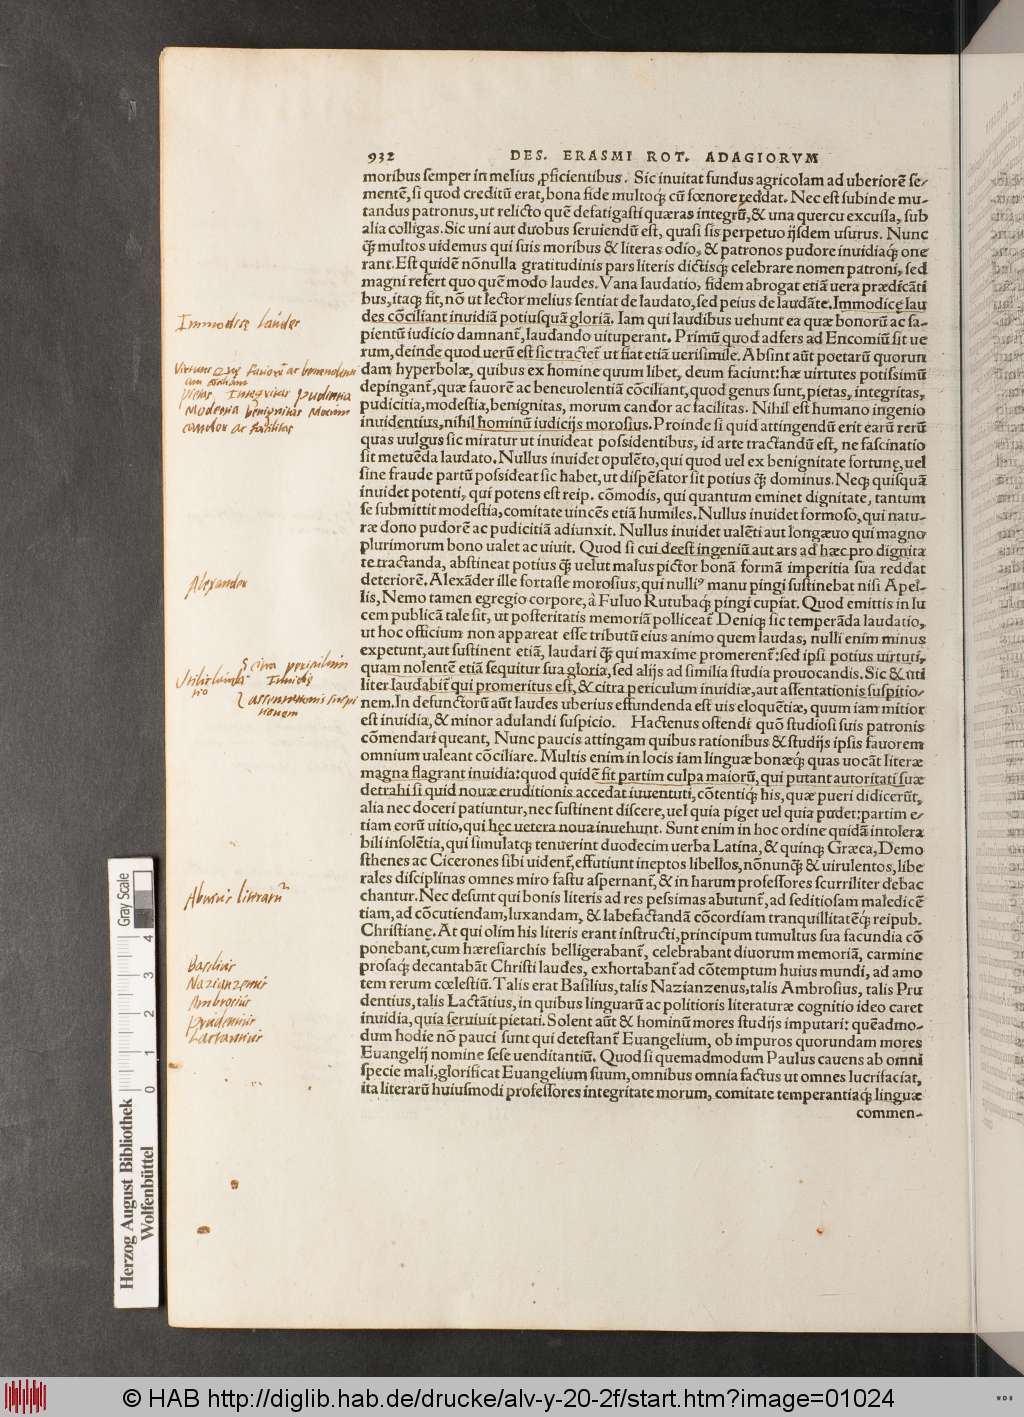 932 DES. ERASMI ROT. ADAGIORVM
moribus semper in melius ꝓficientibus. Sic inuitat fundus agricolam ad uberiorẽ se/
mentẽ, si quod creditũ erat, bona fide multoqȝ cũ fœnore reddat. Nec est subinde mu-
tandus patronus, ut relicto quẽ defatigasti quæras integrũ, & una quercu excussa, sub
alia colligas. Sic uni aut duobus seruiendũ est, quasi sis perpetuo ijsdem usurus. Nunc
q̃ȝ multos uidemus qui suis moribus & literas odio, & patronos pudore inuidiaqȝ one
rant. Est quidẽ nõnulla gratitudinis pars literis dictisqȝ celebrare nomen patroni, sed
magni refert quo quẽ modo laudes. Vana laudatio, fidem abrogat etiã uera prædicãti
bus, itaqȝ fit, nõ ut lector melius sentiat de laudato, sed peius de laudãte. Immodicę lau
des cõciliant inuidiã potiusquã gloriã. Iam qui laudibus uehunt ea quæ bonorũ ac sa-
pientũ iudicio damnant̃, laudando uituperant. Primũ quod adfers ad Encomiũ sit ue
rum, deinde quod uerũ est sic tractet̃ ut fiat etiã uerisimile. Absint aũt poetarũ quorun
dam hyperbolæ, quibus ex homine quum libet, deum faciunt: hæ uirtutes potissimũ
depingant̃, quæ fauorẽ ac beneuolentiã cõciliant, quod genus sunt, pietas, integritas,
pudicitia, modestia, benignitas, morum candor ac facilitas. Nihil est humano ingenio
inuidentius, nihil hominũ iudicijs morosius. Proinde si quid attingendũ erit earũ rerũ
quas uulgus sic miratur ut inuideat possidentibus, id arte tractandũ est, ne fascinatio
sit metuẽda laudato. Nullus inuidet opulẽto, qui quod uel ex benignitate fortunę, uel
sine fraude partũ possideat sic habet, ut dispẽsator sit potius q̃ȝ dominus. Neqȝ quisquã
inuidet potenti, qui potens est reip. cõmodis, qui quantum eminet dignitate, tantum
se submittit modestia, comitate uincẽs etiã humiles. Nullus inuidet formoso, qui natu-
ræ dono pudorẽ ac pudicitiã adiunxit. Nullus inuidet ualẽti aut longæuo qui magno
plurimorum bono ualet ac uiuit. Quod si cui deest ingeniũ aut ars ad hæc pro dignita
te tractanda, abstineat potius q̃ȝ uelut malus pictor bonã formã imperitia sua reddat
deteriorẽ. Alexãder ille fortasse morosius, qui nulliꝰ manu pingi sustinebat nisi Apel-
lis, Nemo tamen egregio corpore, à Fuluo Rutubaqȝ pingi cupiat. Quod emittis in lu
cem publicã tale sit, ut posteritatis memoriã polliceat̃ Deniqȝ sic temperãda laudatio,
ut hoc officium non appareat esse tributũ eius animo quem laudas, nulli enim minus
expetunt, aut sustinent etiã, laudari q̃ȝ qui maxime promerent̃: sed ipsi potius uirtuti,
quam nolentẽ etiã sequitur sua gloria, sed alijs ad similia studia prouocandis. Sic & uti
liter laudabit̃ qui promeritus est, & citra periculum inuidiæ, aut assentationis suspitio-
nem. In defunctorũ aũt laudes uberius effundenda est uis eloquẽtiæ, quum iam mitior
est inuidia, & minor adulandi suspicio. Hactenus ostendi quõ studiosi suis patronis
cõmendari queant, Nunc paucis attingam quibus rationibus & studijs ipsis fauorem
omnium ualeant cõciliare. Multis enim in locis iam linguæ bonæqȝ quas uocãt literæ
magna flagrant inuidia: quod quidẽ fit partim culpa maiorũ, qui putant autoritati suæ
detrahi si quid nouæ eruditionis accedat iuuentuti, cõtentiqȝ his, quæ pueri didicerũt,
alia nec doceri patiuntur, nec sustinent discere, uel quia piget uel quia pudet: partim e-
tiam eorũ uitio, qui hęc uetera noua inuehunt. Sunt enim in hoc ordine quidã intolera
bili insolẽtia, qui simulatqȝ tenuerint duodecim uerba Latina, & quinqȝ Græca, Demo
sthenes ac Cicerones sibi uident̃, effutiunt ineptos libellos, nõnunq̃ȝ & uirulentos, libe
rales disciplinas omnes miro fastu aspernant̃, & in harum professores scurriliter debac
chantur. Nec desunt qui bonis literis ad res pessimas abutunt̃, ad seditiosam maledicẽ
tiam, ad cõcutiendam, luxandam, & labefactandã cõcordiam tranquillitatẽqȝ reipub.
Christianę. At qui olim his literis erant instructi, principum tumultus sua facundia cõ
ponebant, cum hæresiarchis belligerabant̃, celebrabant diuorum memoriã, carmine
prosaqȝ decantabãt Christi laudes, exhortabant̃ ad cõtemptum huius mundi, ad amo
rem rerum cœlestiũ. Talis erat Basilius, talis Nazianzenus, talis Ambrosius, talis Pru
dentius, talis Lactãtius, in quibus linguarũ ac politioris literaturæ cognitio ideo caret
inuidia, quia seruiuit pietati. Solent aũt & hominũ mores studijs imputari: quẽadmo-
dum hodie nõ pauci sunt qui detestant̃ Euangelium, ob impuros quorundam mores
Euangelij nomine sese uenditantiũ. Quod si quemadmodum Paulus cauens ab omni
specie mali, glorificat Euangelium suum, omnibus omnia factus ut omnes lucrifaciat,
ita literarũ huiusmodi professores integritate morum, comitate temperantiaqȝ linguæ
commen-
Immodicę laudes
pietas Integritas pudicitia
Modestia benignitas Morum
candor ac facilitas
Alexander
citra periculum
Inuidiæ
assentationis suspi
tionem
Abusus literarũ
Basilius
Nazianzenus
Ambrosius
Prudentius
Lactantius
Herzog August Bibliothek
Wolfenbüttel
Gray Scale
0 1 2 3 4
© HAB http://diglib.hab.de/drucke/alv-y-20-2f/start.htm?image=01024